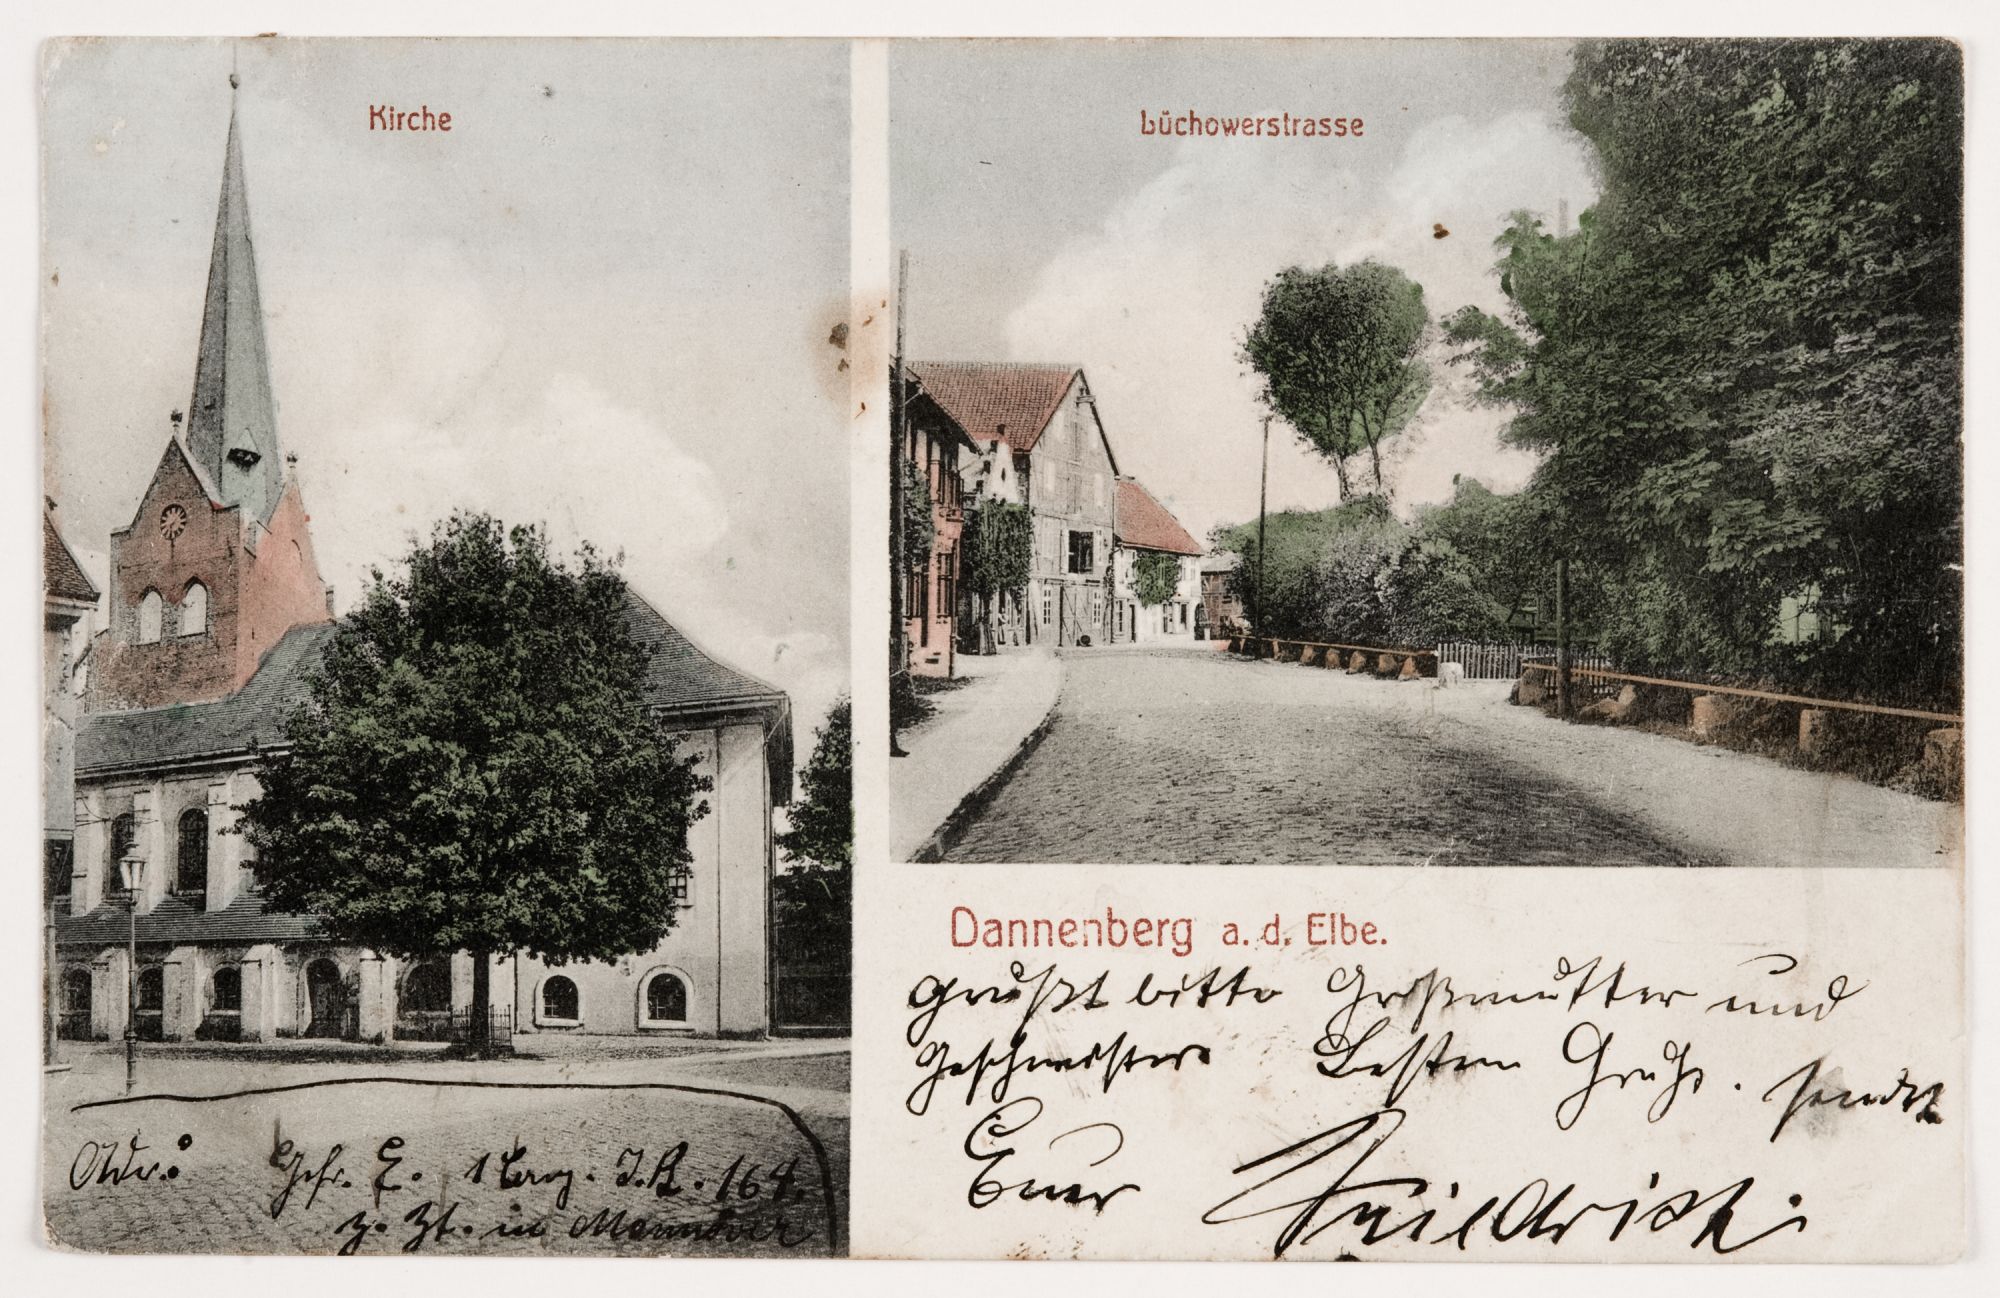 Kirche
Lüchowerstrasse
Dannenberg a. d. Elbe.
Grüßt bitte Großmutter und
Geschwister Besten Gruß. sendet
Euer Friedrich.
Adr.: Gefr. E. 1 I.R. 164.
z. Zt. in